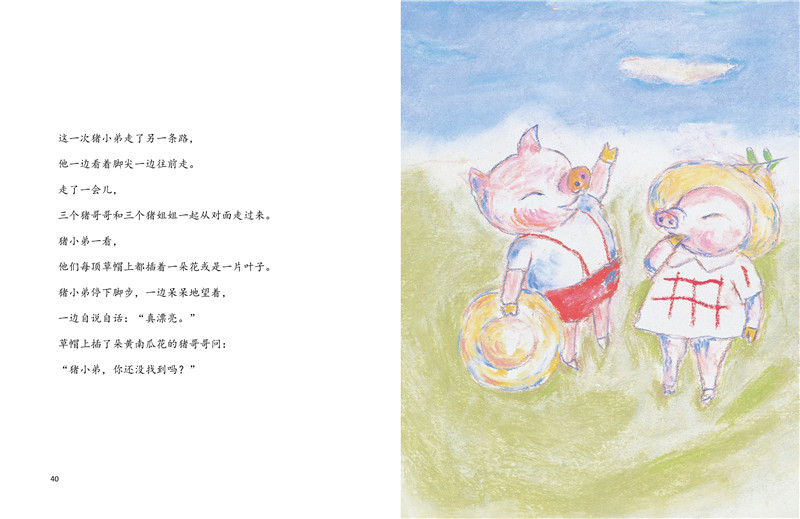 这一次猪小弟走了另一条路，
他一边看着脚尖一边往前走。
走了一会儿，
三个猪哥哥和三个猪姐姐一起从对面走过来。
猪小弟一看，
他们每顶草帽上都插着一朵花或是一片叶子。
猪小弟停下脚步，一边呆呆地望着，
一边自说自话：“真漂亮。”
草帽上插了朵黄南瓜花的猪哥哥问：
“猪小弟，你还没找到吗？”
40